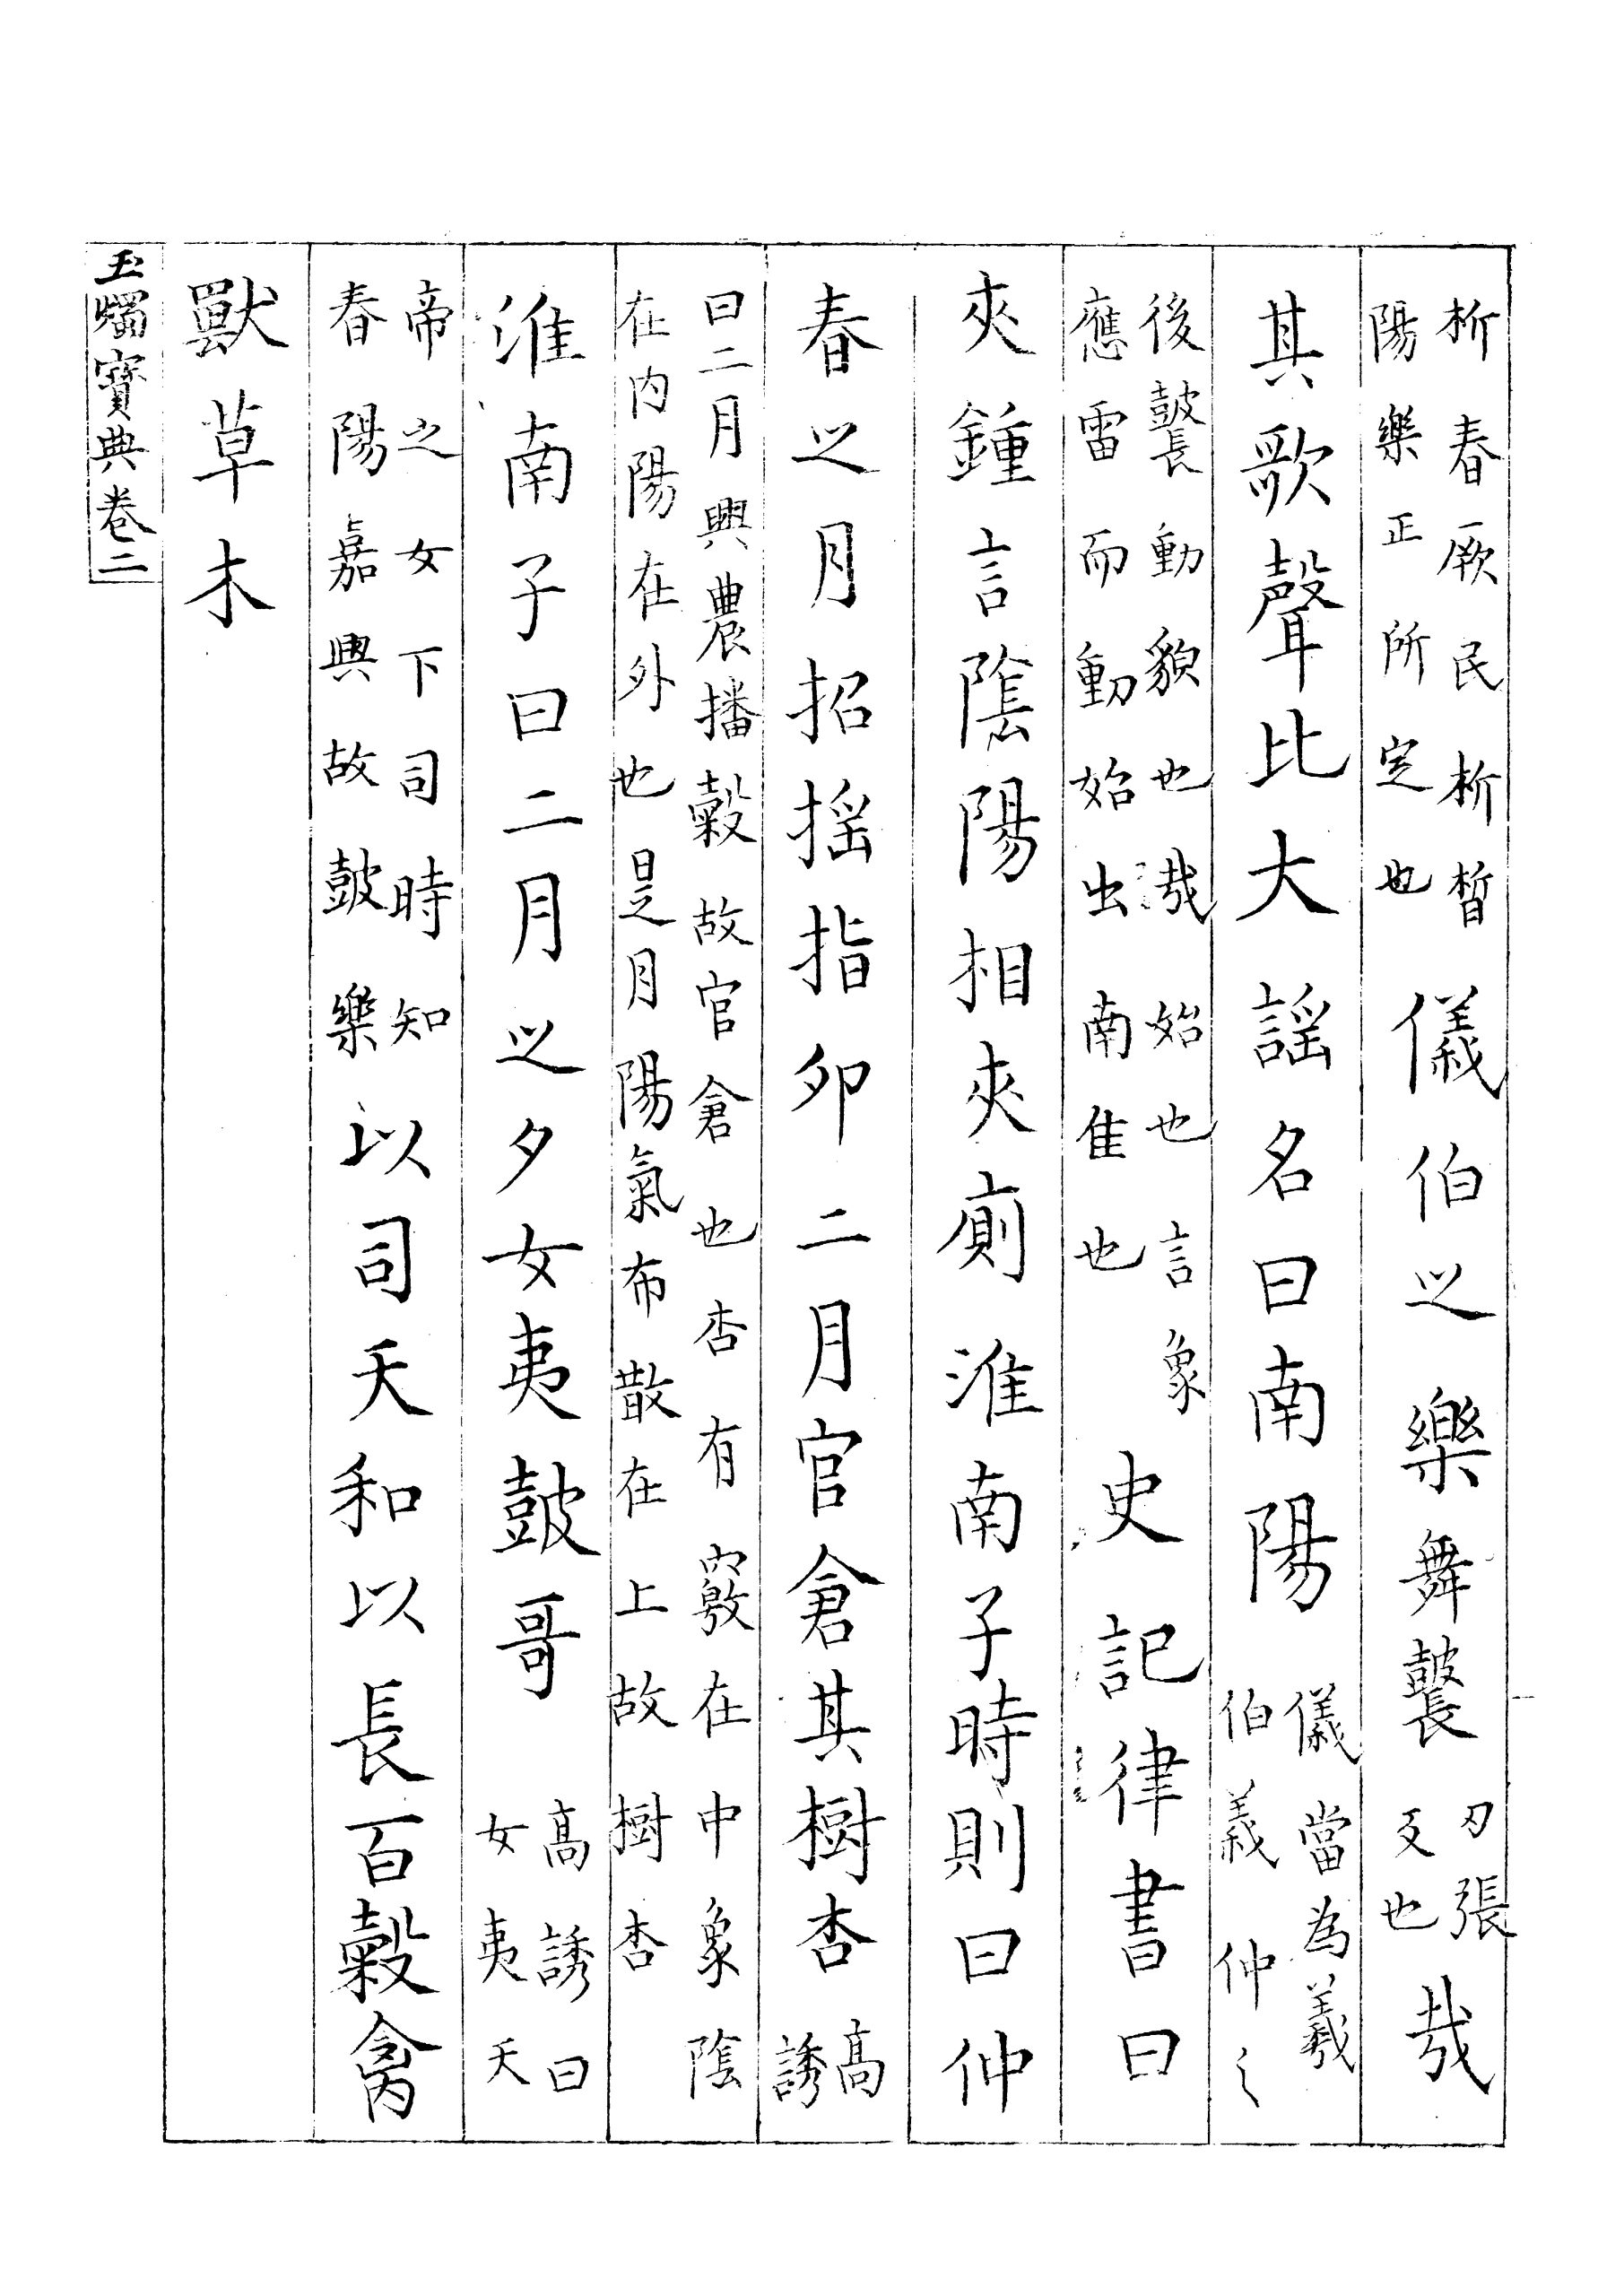 析春厥民析晳
陽樂正所定也
儀伯之樂舞鼚
刃張
反也
哉
其歌聲比大謡名曰南陽
儀當為羲
伯義仲之
後鼚動貌也哉始也言象
應雷而動始出南隹也
史記律書曰
夾鍾言陰陽相夾廁淮南子時則曰仲
春之月招摇指卯二月官倉其樹杏
高
誘
曰二月興農播穀故官倉也杏有竅在中象陰
在内陽在外也是月陽氣布散在上故樹杏
淮南子曰二月之夕女夷鼓哥
高誘曰
女夷天
帝之女下司時知
春陽嘉興故鼓樂
以司天和以長百穀禽
獸草木
玉燭寶典卷二